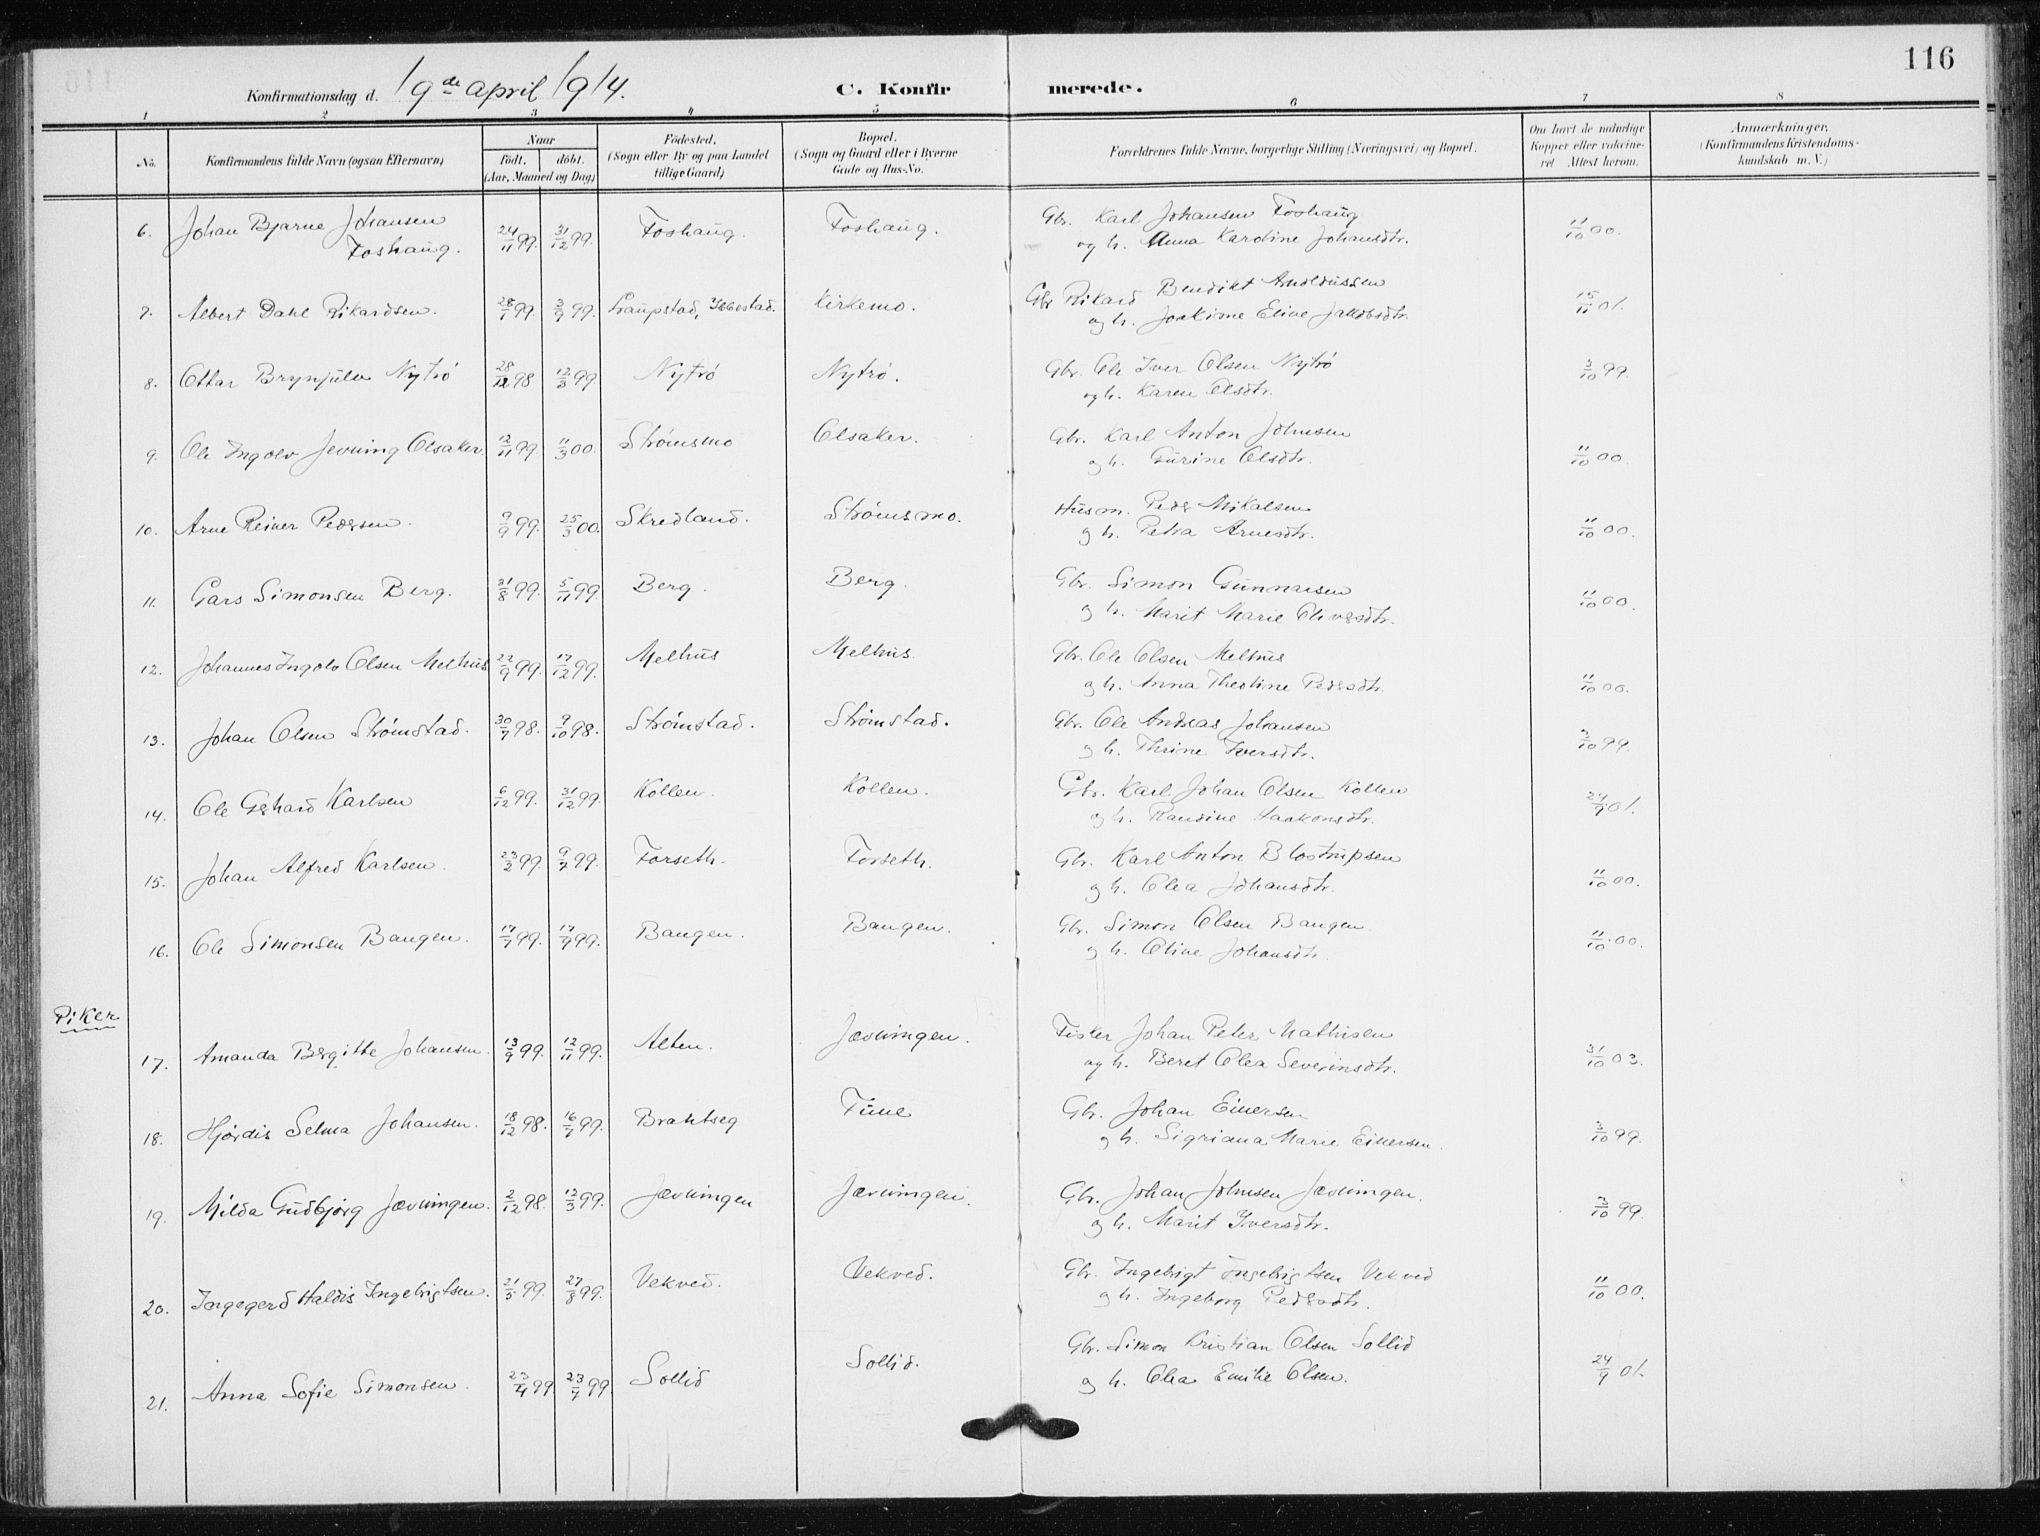 116
Konfirmationsdag d. 19de april 1914.
C. Konfirmerede.
1 2 3 4 5 6 7 8
No.
Konfirmandens fulde Navn (ogsaa Efternavn)
Naar
födt. döbt.
(Aar, Maaned og Dag)
Födested.
(Sogn eller By og paa Landet
tillige Gaard)
Bopæl.
(Sogn og Gaard eller i Byerne
Gade og Hus-No.
Forældrenes fulde Navne, borgerlige Stilling (Næringsvei) og Bopæl.
Om havt de naturlige
Kopper eller vaccine-
ret Attest herom.
Anmærkninger.
(Konfirmandens Kristendoms-
kundskab m. V.)
6. Johan Bjarne Johansen Foshaug. 24/11 99. 31/12 99. Foshaug. Foshaug. Gbr. Karl Johansen Foshaug 11/10 00.
og h. Anna Karoline Johansdtr.
7. Albert Dahl Rikardsen. 28/1 99. 3/9 99. Ibbestad. Kirkemo. Gbr. Rikard Benedikt Arnoldussen 15/11 01.
og h. Joakime Eline Jakobsdtr.
8. Ottar Brynjulv Nytrö 28/12 98 12/3 99 Nytrö Nytrö. Gbr. Ole Iver Olsen Nytrö 3/10 99.
og h. Karen Olsdtr.
9. Ole Ingolv Jevning Olsaker. 12/11 99. 11/3 00. Strömsmo Olsaker. Gbr. Karl Anton Johnsen 11/10 00.
og h. Gurine Olsdtr.
10. Arne Reiner Pedersen. 9/9 99. 25/3 00. Skredland. Strömsmo. Husm. Peder Mikalsen 11/10 00.
og h. Petra Arnesdtr.
11. Lars Simonsen Berg. 31/8 99. 5/11 99. Berg. Berg. Gbr. Simon Gunnarsen 11/10 00.
og h. Marit Marie Oliversdtr.
12. Johannes Ingolv Olsen Melhus 22/9 99. 17/12 99. Melhus Melhus. Gbr. Ole Olsen Melhus 11/10 00.
og h. Anna Theoline Pedersdtr.
13. Johan Olsen Strömstad. 30/7 98. 9/10 98. Strömstad. Strömstad. Gbr. Ole Andreas Johansen 3/10 99.
og h. Thrine Iversdtr.
14. Ole Gerhard Karlsen 6/12 99. 31/12 99. Kollen. Kollen. Gbr. Karl Johan Olsen Kollen 24/9 01.
og h. Randine Haakonsdtr.
15. Johan Alfred Karlsen. 23/2 99. 9/7 99. Forseth. Forseth. Gbr. Karl Anton Blostrupsen 11/10 00.
og h. Olea Johansdtr.
16. Ole Simonsen Bangen. 17/7 99. 17/9 99. Bangen. Bangen. Gbr. Simon Olsen Bangen 11/10 00.
og h. Oline Johansdtr.
Piker
17. Amanda Bergitte Johansen. 13/9 99. 12/11 99. Alten. Jævningen. Fisker Johan Peter Mathisen 31/10 03.
og h. Beret Olea Severinsdtr.
18. Hjördis Selma Johansen. 18/12 98. 16/7 99. Brakhseg Tune Gbr. Johan Einersen 3/10 99.
og h. Sigriana Marie Einersen.
19. Milda Gudbjörg Jævningen. 2/12 98. 12/3 99. Jævningen Jævningen. Gbr. Johan Johnsen Jævningen. 3/10 99.
og h. Marit Iversdtr.
20. Ingegerd Haldis Ingebrigtsen. 21/5 99. 27/8 99. Vekved. Vekved. Gbr. Ingebrigt Ingebrigtsen Vekved 11/10 00.
og h. Ingeborg Pedersdtr.
21. Anna Sofie Simonsen. 23/4 99 23/7 99. Sollid Sollid. Gbr. Simon Kristian Olsen Sollid 24/9 01.
og h. Olea Emilie Olsen.